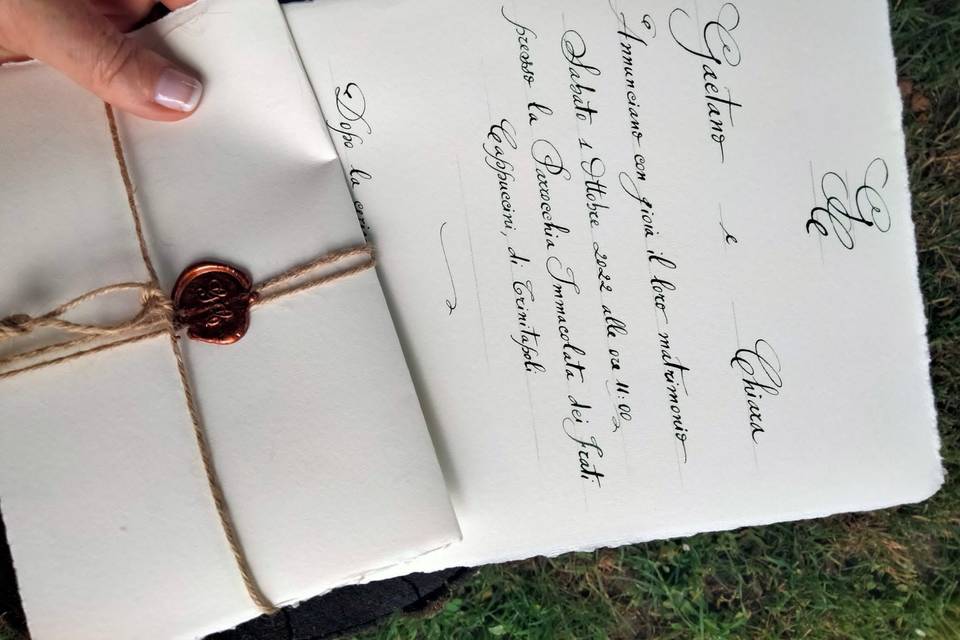 G C
Gaetano e Chiara
Annunciano con gioia il loro matrimonio
Sabato 1 Ottobre 2022 alle ore 11:00
presso la Parrocchia Immacolata dei Frati
Cappuccini, di Trinitapoli
Dopo la